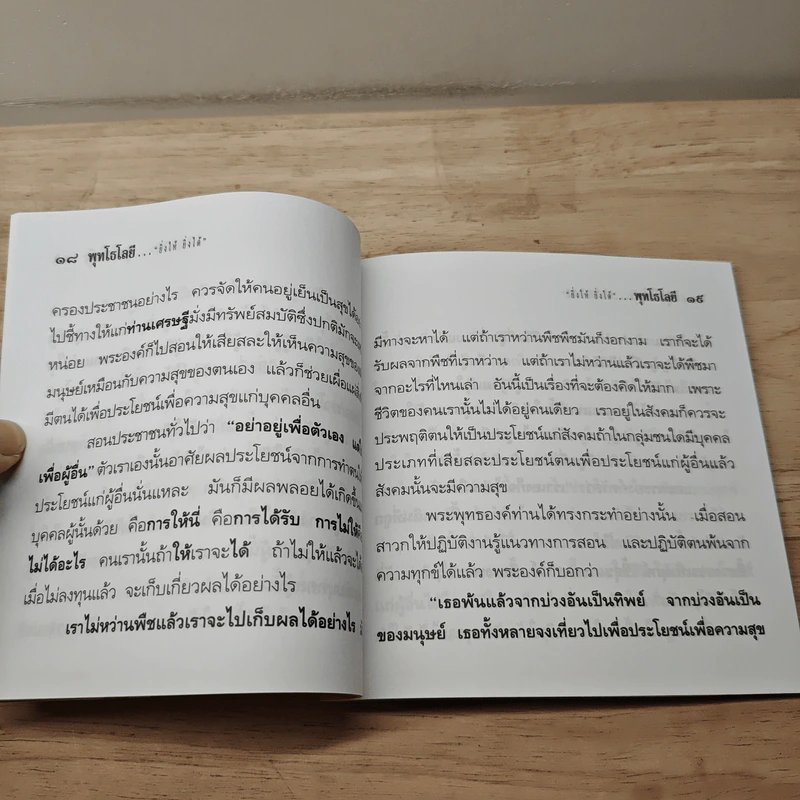 ๑๘ พุทโธโลยี... "ยิ่งให้ ยิ่งได้"
ครองประชาชนอย่างไร ควรจัดให้คนอยู่เย็นเป็นสุขได้
ไปชี้ทางให้แก่ท่านเศรษฐีมั่งมีทรัพย์สมบัติซึ่งปกติมัก
หน่อย พระองค์ก็ไปสอนให้เสียสละให้เห็นความสุขของ
มนุษย์เหมือนกับความสุขของตนเอง แล้วก็ช่วยเผื่อแผ่
มีตนได้เพื่อประโยชน์เพื่อความสุขแก่บุคคลอื่น
สอนประชาชนทั่วไปว่า "อย่าอยู่เพื่อตัวเอง
เพื่อผู้อื่น" ตัวเราเองนั้นอาศัยผลประโยชน์จากการทำ
ประโยชน์แก่ผู้อื่นนั่นแหละ มันก็มีผลพลอยได้เกิดขึ้น
บุคคลผู้นั้นด้วย คือการให้นี่ คือการได้รับ การไม่ให้
ไม่ได้อะไร คนเรานั้นถ้าให้เราจะได้ ถ้าไม่ให้แล้วจะได้
เมื่อไม่ลงทุนแล้ว จะเก็บเกี่ยวผลได้อย่างไร
เราไม่หว่านพืชแล้วเราจะไปเก็บผลได้อย่างไร
"ยิ่งให้ ยิ่งได้"...พุทโธโลยี ๑๙
มีทางจะหาได้ แต่ถ้าเราหว่านพืชพืชมันก็งอกงาม เราก็จะได้
รับผลจากพืชที่เราหว่าน แต่ถ้าเราไม่หว่านแล้วเราจะได้พืชมา
จากอะไรที่ไหนเล่า อันนี้เป็นเรื่องที่จะต้องคิดให้มาก เพราะ
ชีวิตของคนเรานั้นไม่ได้อยู่คนเดียว เราอยู่ในสังคมก็ควรจะ
ประพฤติตนให้เป็นประโยชน์แก่สังคมถ้าในกลุ่มชนใดมีบุคคล
ประเภทที่เสียสละประโยชน์ตนเพื่อประโยชน์แก่ผู้อื่นแล้ว
สังคมนั้นจะมีความสุข
พระพุทธองค์ท่านได้ทรงกระทำอย่างนั้น เมื่อสอน
สาวกให้ปฏิบัติงานรู้แนวทางการสอน และปฏิบัติตนพ้นจาก
ความทุกข์ได้แล้ว พระองค์ก็บอกว่า
"เธอพ้นแล้วจากบ่วงอันเป็นทิพย์ จากบ่วงอันเป็น
ของมนุษย์ เธอทั้งหลายจงเที่ยวไปเพื่อประโยชน์เพื่อความสุข